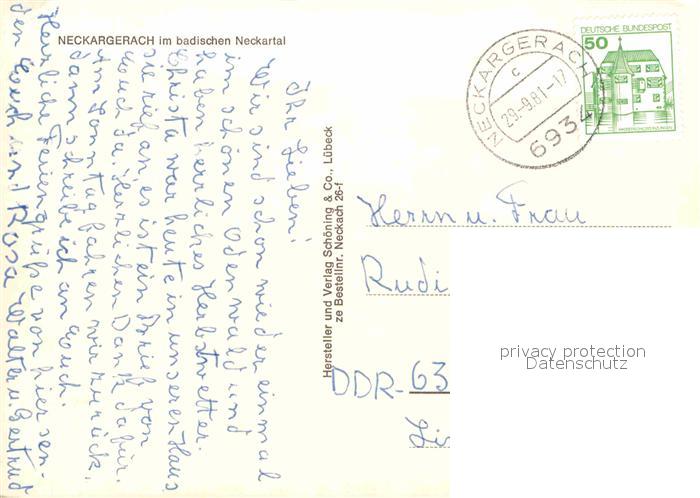 NECKARGERACH im badischen Neckartal
Ihr Lieben!
Wir sind schon wieder einmal
im schönen Odenwald und
haben herrliches Herbstwetter.
Christa war heute in unseren Haus
sie rief an es ist ein Brief von
Euch da. Herrlichen Dank dafür.
Am Sonntag fahren wir zurück.
Dann schreibe ich an Euch.
Herzliche Feriengrüße von hier sen-
den Euch und Rosa Walter u. Gertrud
Hersteller und Verlag Schöning & Co., Lübeck
ze Bestellnr. Neckach 26-f
NECKARGERACH
c
29.-9.81-17
6934
DEUTSCHE BUNDESPOST
50
WASSERSCHLOSS INZLINGEN
Herrn u. Frau
Rudi
DDR-63
privacy protection
Datenschutz